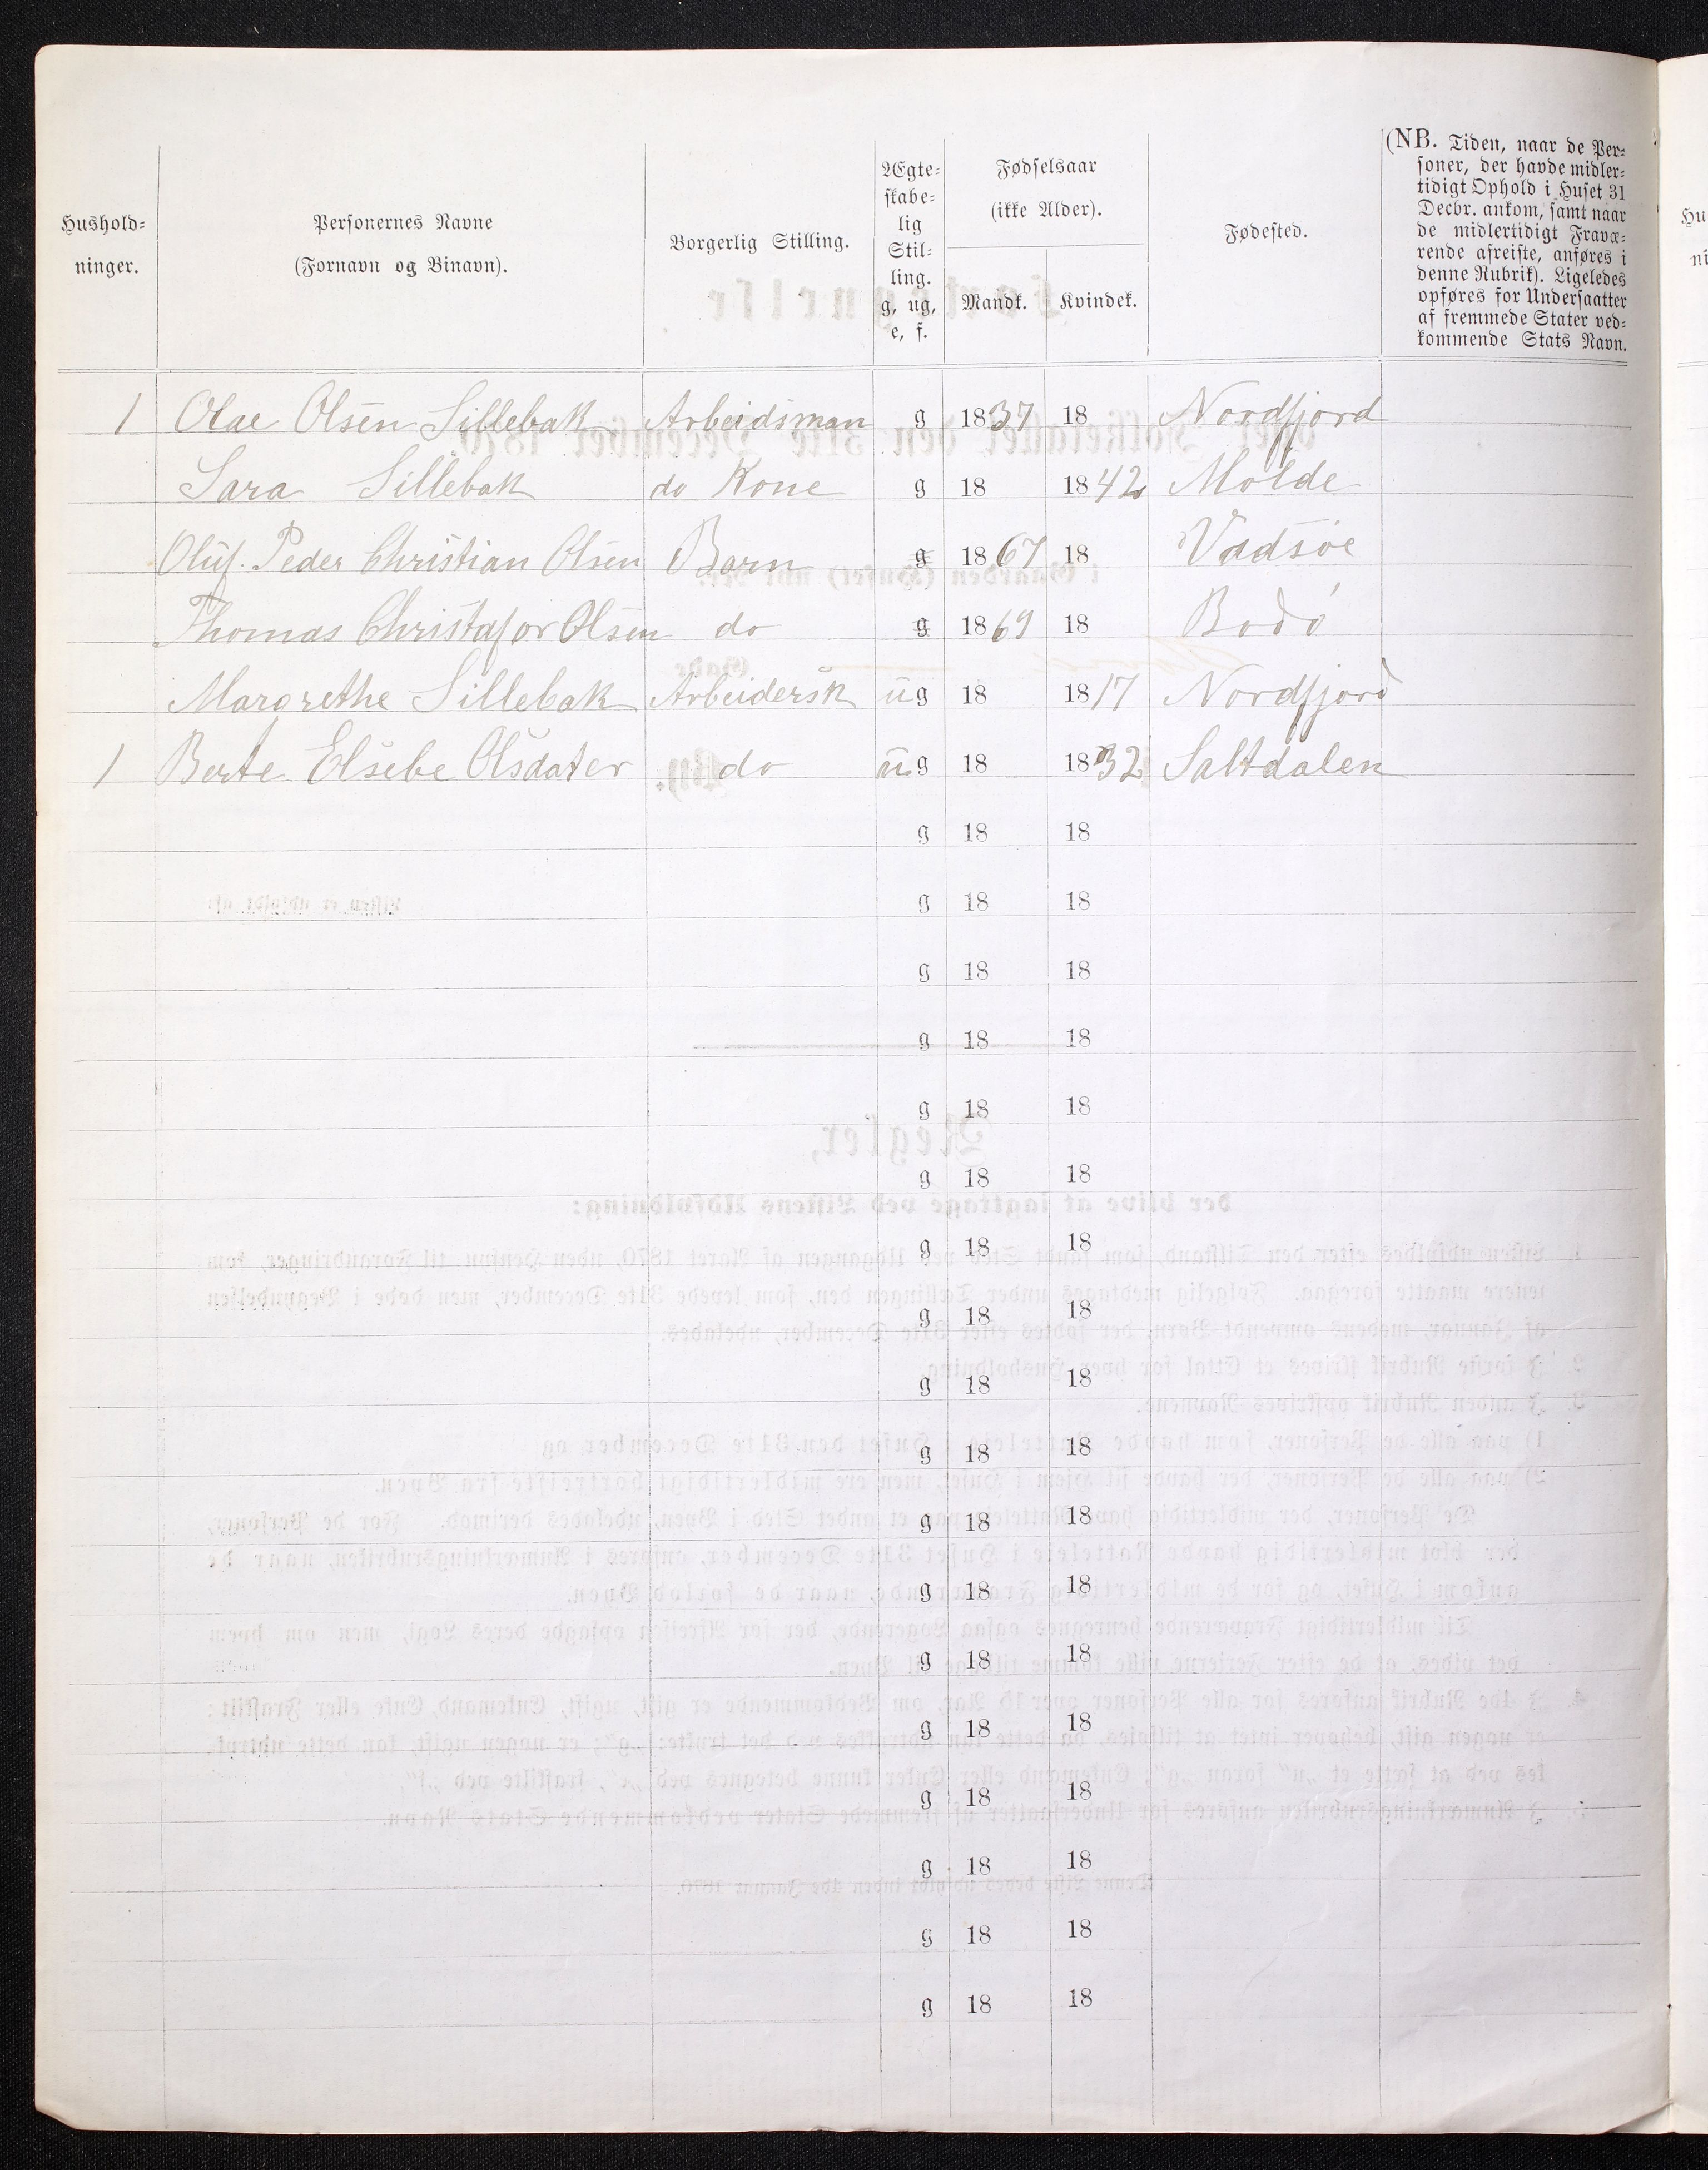 Hushold-
ninger.
Personernes Navne
(Fornavn og Binavn).
Borgerlig Stilling.
Ægte-
skabe-
lig
Stil-
ling.
g, ug,
e, f.
Fødselsaar
(ikke Alder).
Mandk. Kvindek.
Fødested.
(NB. Tiden, naar de Per-
soner, der havde midler-
tidigt Ophold i Huset 31
Decbr. ankom, samt naar
de midlertidigt Fravæ-
rende afreiste, anføres i
denne Rubrik). Ligeledes
opføres for Undersaatter
af fremmede Stater ved-
kommende Stats Navn.
1 Olae Olsen Sillebak Arbeidsman g 1837 18 Nordfjord
Sara Sillebak do Kone g 18 1842 Molde
Oluf. Peder Christian Olsen Barn g 1867 18 Vadsøe
Thomas Christafor Olsen do g 1869 18 Bodø
Margrethe Sillebak Arbeidersk ug 18 1817 Nordfjord
1 Berte Elsebe Olsdater do ug 18 1832 Saltdalen
g 18 18
g 18 18
g 18 18
g 18 18
g 18 18
g 18 18
g 18 18
g 18 18
g 18 18
g 18 18
g 18 18
g 18 18
g 18 18
g 18 18
g 18 18
g 18 18
g 18 18
g 18 18